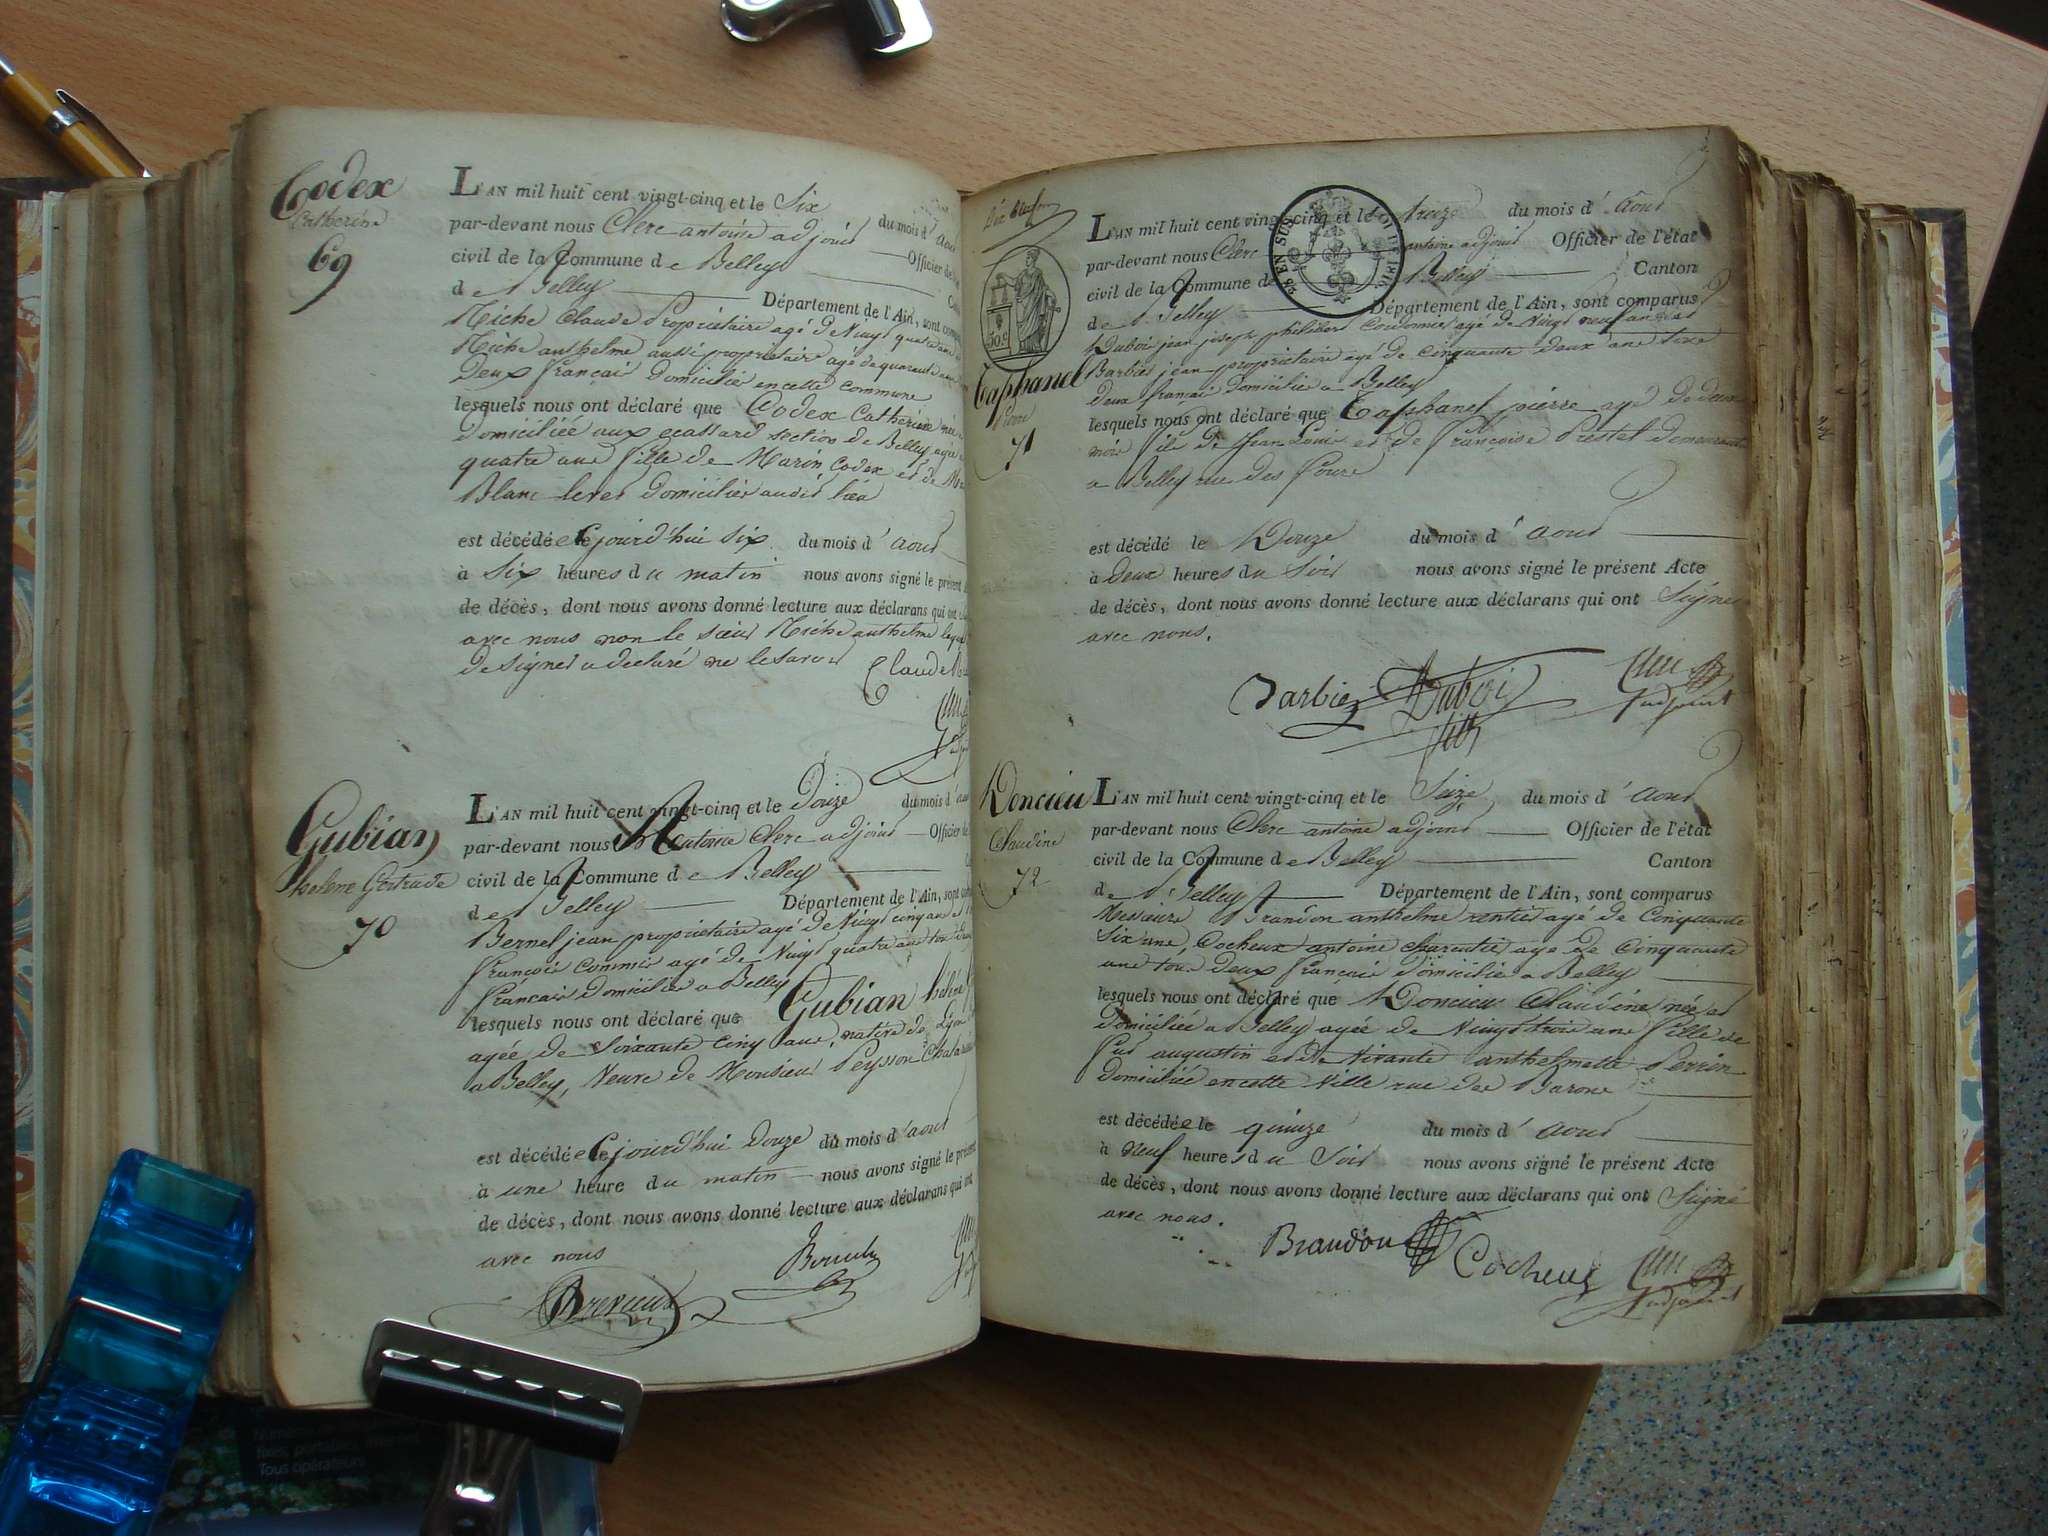 Codex
Catherine
69
L'AN mil huit cent vingt-cinq et le Six du mois d'aout
par-devant nous Clerc antoine adjoint Officier de
civil de la Commune de Belley
de Belley Département de l'Ain, sont
Miche Claude Propriétaire agé de Vingt quatre ans
Miche anthelme aussi propriétaire agé de quarante
Deux français Domiciliés en cette commune
lesquels nous ont déclaré que Codex Catherine née
domiciliée aux ecassard section de Belley agée
quatre ans fille de Marin Codex et de
Blanc leres Domiciliés audit lieu
est décédée Cejourd'hui Six du mois d'aout
à Six heures du matin nous avons signé le présent
de décès, dont nous avons donné lecture aux déclarans qui ont
avec nous non le sieur Miche anthelme lequel
de signer a declaré ne le savoir
Claude
Gubian
helene Gertrude
70
L'AN mil huit cent vingt-cinq et le Douze du mois d'aout
par-devant nous Antoine Clerc adjoint Officier
civil de la Commune de Belley
de Belley Département de l'Ain, sont
Bernel jean propriétaire agé de Vingt cinq ans et
françois commis agé de Vingt quatre ans tous deux
français domiciliés a Belley
lesquels nous ont déclaré que Gubian hélène
agée de Soixante cinq ans, native de Lyon
a Belley, Veuve de Monsieur Peysson
est décédée Cejourd'hui Douze du mois d'aout
à une heure du matin nous avons signé le présent
de décès, dont nous avons donné lecture aux déclarans qui ont
avec nous
50 c
Caphanel
Pierre
71
L'AN mil huit cent vingt-cinq et le treize du mois d'aout
par-devant nous Clerc antoine adjoint Officier de l'état
civil de la Commune de Belley Canton
de Belley Département de l'Ain, sont comparus
Dubois jean joseph philibert Cordonnier agé de Vingt neuf ans et
Barbier jean propriétaire agé de cinquante deux ans tous
deux français domiciliés a Belley
lesquels nous ont déclaré que Caphanel pierre agé de deux
mois fils de Jean Louis et de françoise Prestel demeurant
a Belley rue des fours
est décédé le Douze du mois d'aout
à Deux heures du Soir nous avons signé le présent Acte
de décès, dont nous avons donné lecture aux déclarans qui ont Signé
avec nous.
Barbier Dubois adjoint
fils
Doncieu
Claudine
72
L'AN mil huit cent vingt-cinq et le Seize du mois d'aout
par-devant nous Clerc antoine adjoint Officier de l'état
civil de la Commune de Belley Canton
de Belley Département de l'Ain, sont comparus
Messieurs Brandon anthelme rentier agé de Cinquante
Six ans, Cocheux antoine charcutier agé de Cinquante
ans tous Deux français domiciliés a Belley
lesquels nous ont déclaré que Doncieu Claudine née et
domiciliée a Belley agée de Vingt trois ans fille de
fut augustin et de Vivante anthelmette Perrin
domiciliée en cette Ville rue des Barons
est décédée le quinze du mois d'aout
à neuf heures du Soir nous avons signé le présent Acte
de décès, dont nous avons donné lecture aux déclarans qui ont Signé
avec nous.
Brandon Cocheux adjoint
Tous opérateurs